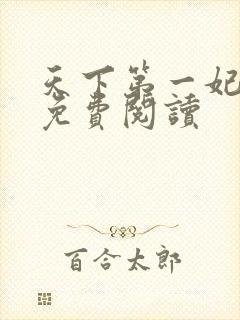 天下第一妃
免費閱讀
百合太郎